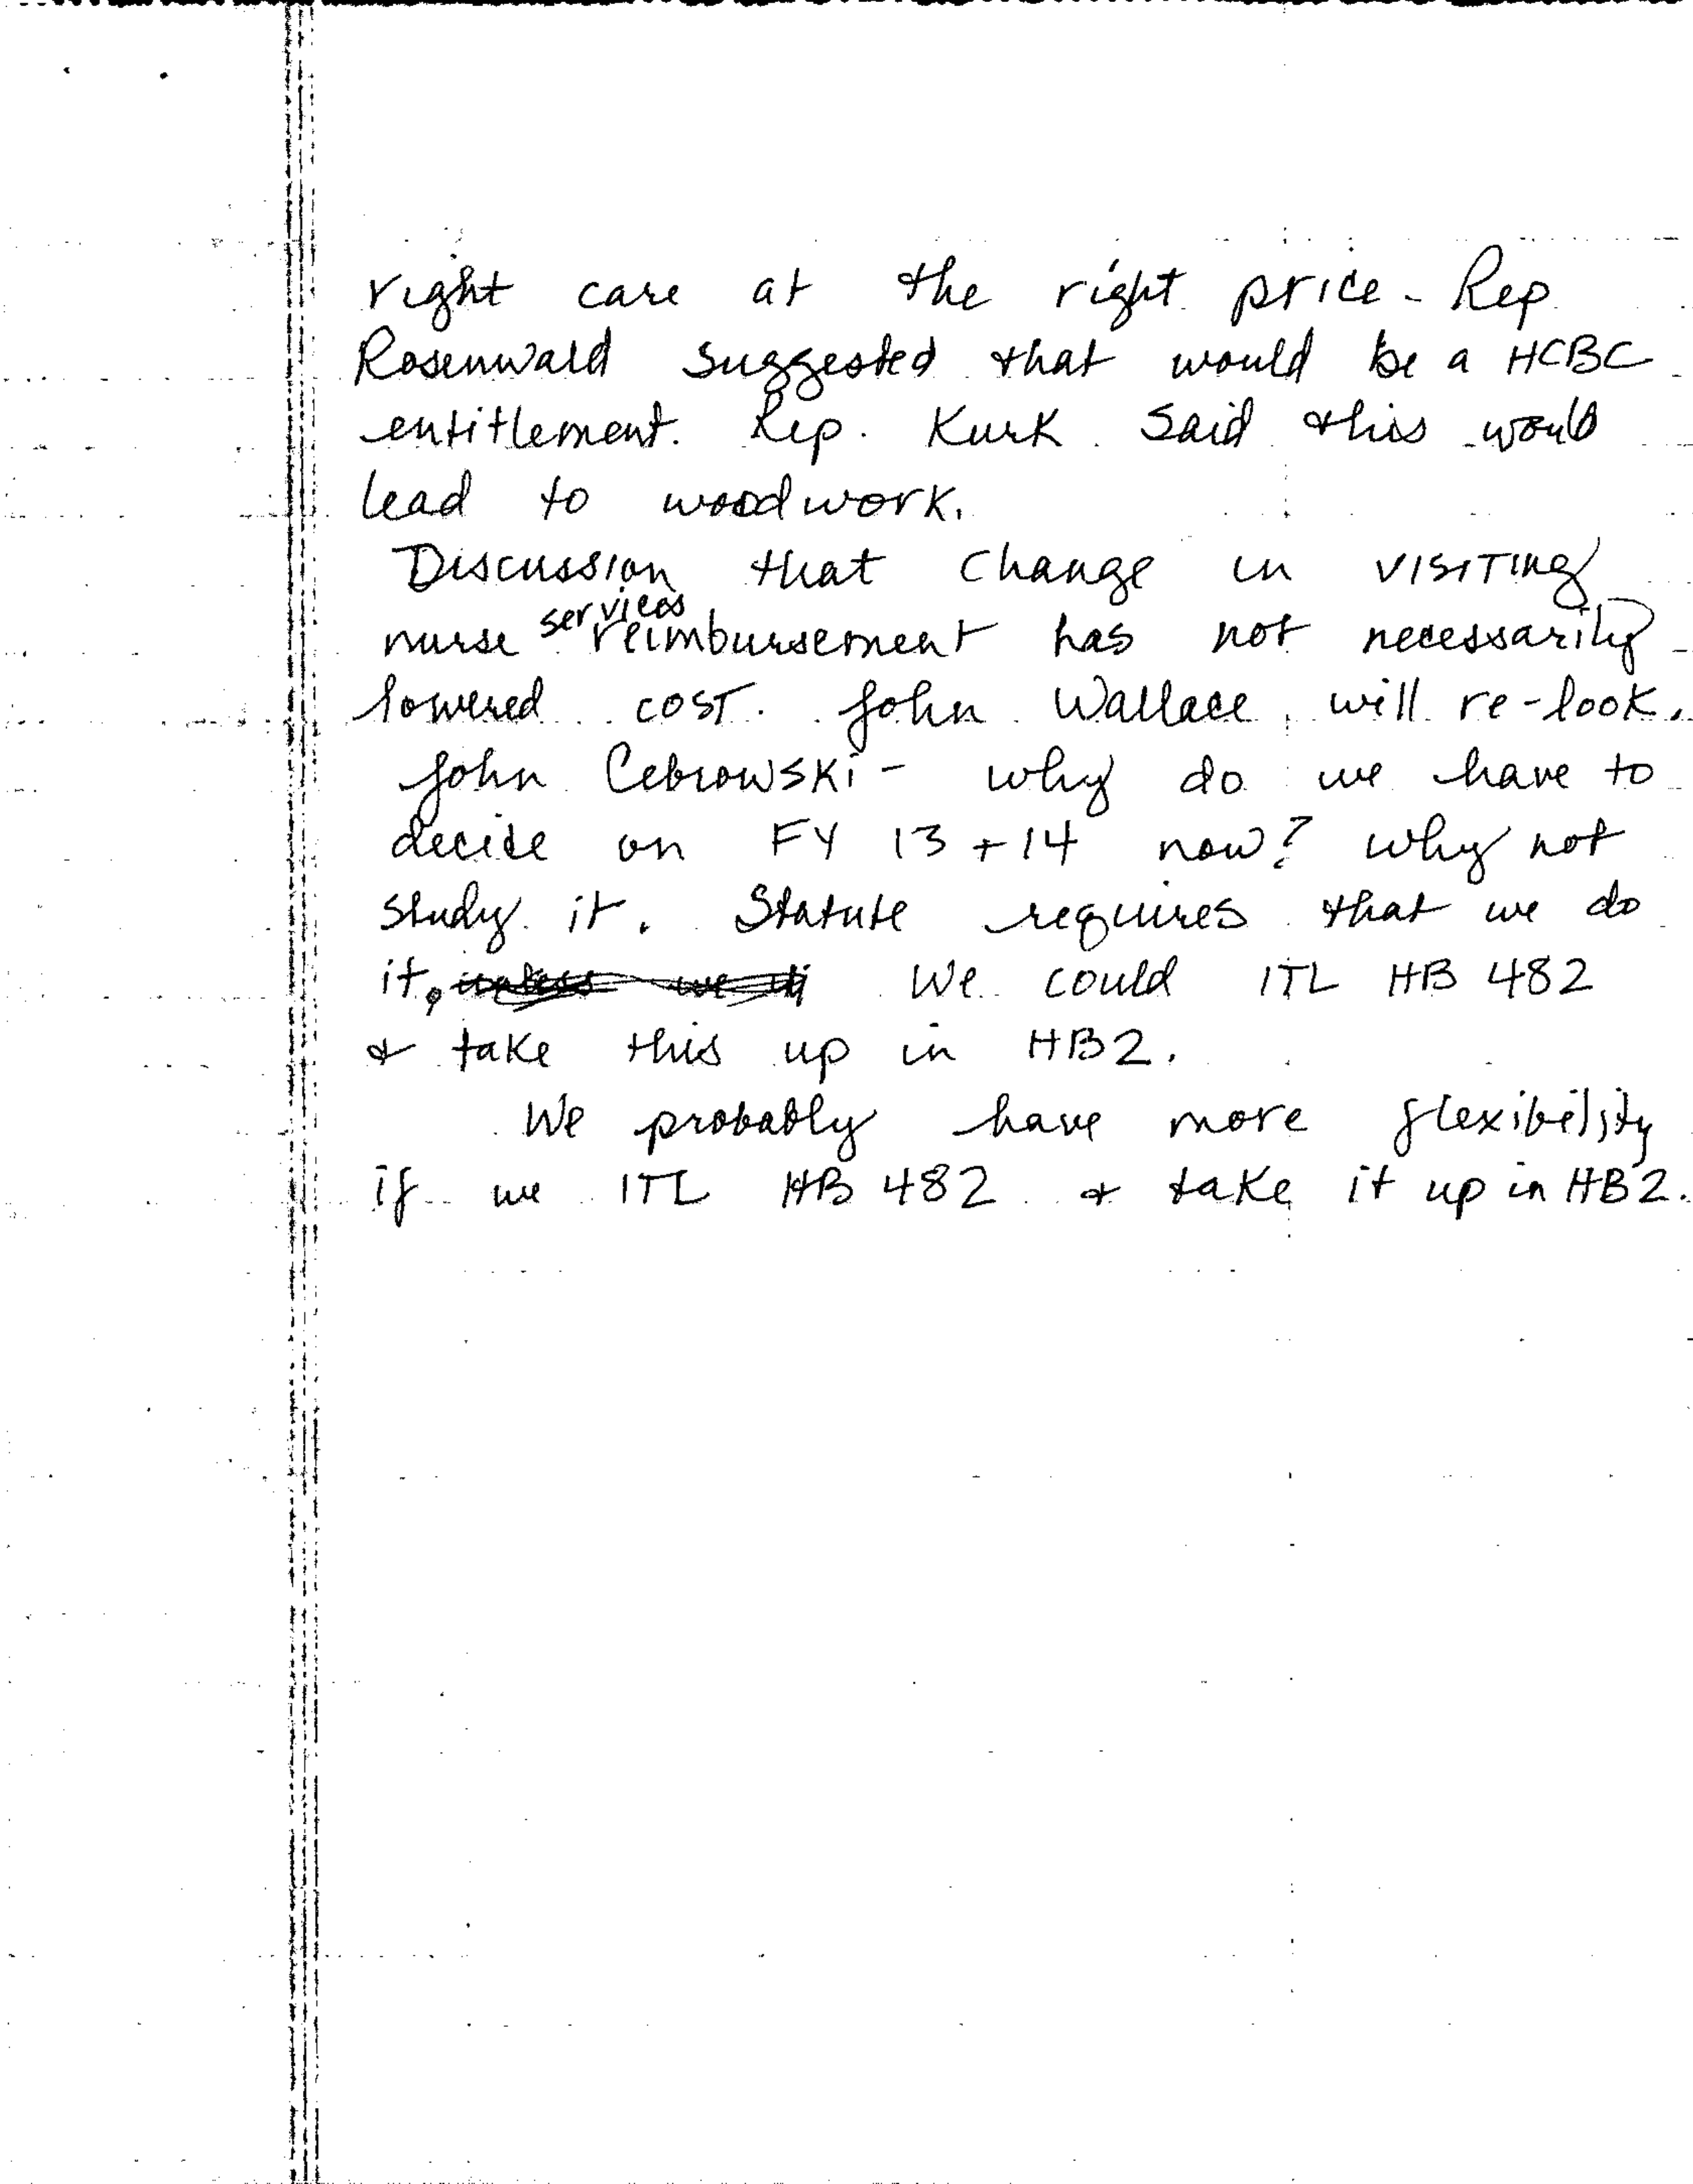 right care at the right price - Rep
Rosenwald suggested that would be a HCBC
entitlement. Rep. Kurk said this would
lead to woodwork.
Discussion that change in visiting
nurse services reimbursement has not necessarily
lowered cost. John Wallace will re-look.
John Cebrowski - why do we have to
decide on FY 13 + 14 now? Why not
study it. Statute requires that we do
it. We could ITL HB 482
& take this up in HB2.
We probably have more flexibility
if we ITL HB 482 & take it up in HB2.